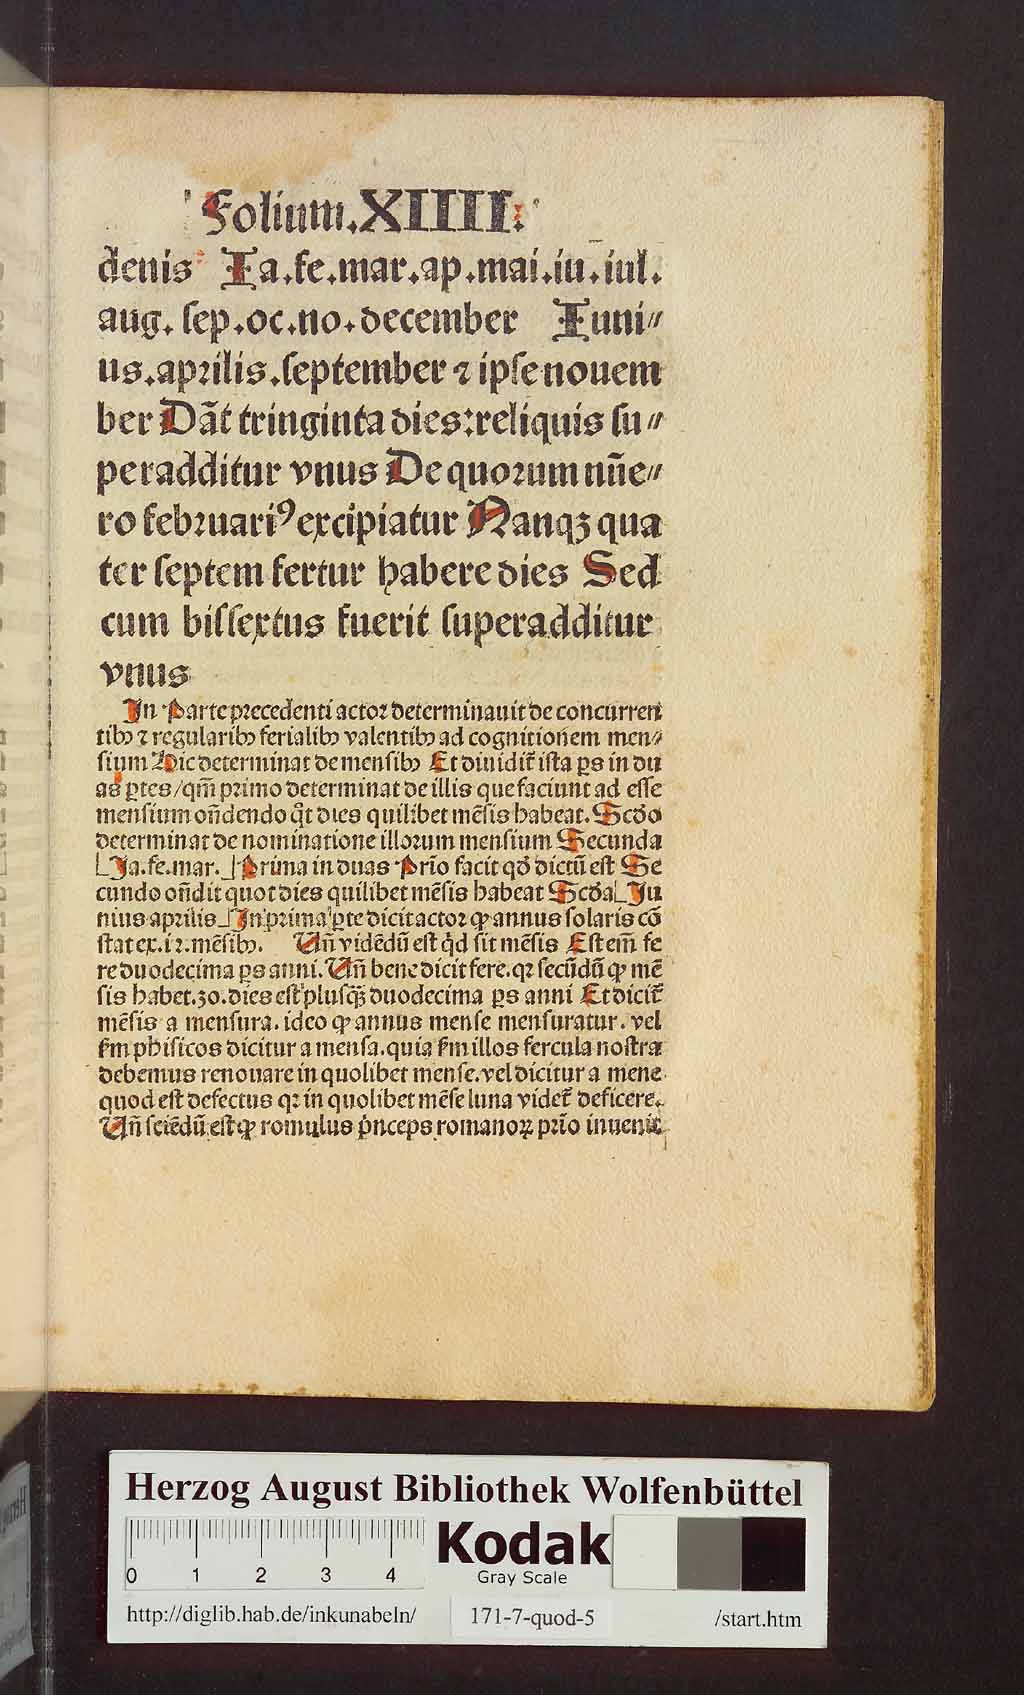 Folium.XIIII.
denis Ia.fe.mar.ap.mai.iu.iul.
aug. sep.oc.no.december Iuni⸗
us.aprilis.september ⁊ ipse nouem
ber Dãt tringinta dies:reliquis su⸗
peradditur vnus De quorum nũe⸗
ro februariꝰ excipiatur Nanqꝫ qua
ter septem fertur habere dies Sed
cum bissextus fuerit superadditur
vnus
In Parte precedenti actor determinauit de concurren
tibꝰ ⁊ regularibꝰ ferialibꝰ valentibꝰ ad cognitionem men⸗
sium Hic determinat de mensibꝰ Et diuidit̃ ista ꝑs in du
as ꝑtes/qm̃ primo determinat de illis que faciunt ad esse
mensium oñdendo q̃t dies quilibet mẽsis habeat. Scďo
determinat de nominatione illorum mensium Secunda
Ja.fe.mar. Prima in duas Prĩo facit qď dictũ est Se
cundo oñdit quot dies quilibet mẽsis habeat Scďa Ju
nius aprilis In prima ꝑte dicit actor ꝙ annus solaris cõ
stat ex.12.mẽsibꝰ. Uñ vidẽdũ est q̇d sit mẽsis Est em̃ fe
re duodecima ꝑs anni. Uñ bene dicit fere.qꝛ secũdũ ꝙ mẽ
sis habet.30.dies est plusqꝫ duodecima ꝑs anni Et dicit̃
mẽsis a mensura.ideo ꝙ annus mense mensuratur. vel
s̃m phisicos dicitur a mensa.quia s̃m illos fercula nostra
debemus renouare in quolibet mense.vel dicitur a mene
quod est defectus qꝛ in quolibet mẽse luna videt̃ deficere.
Uñ sciẽdũ est ꝙ romulus p̃nceps romanoꝝ prĩo inuenit
Herzog August Bibliothek Wolfenbüttel
0 1 2 3 4
Kodak
Gray Scale
http://diglib.hab.de/inkunabeln/ 171-7-quod-5 /start.htm